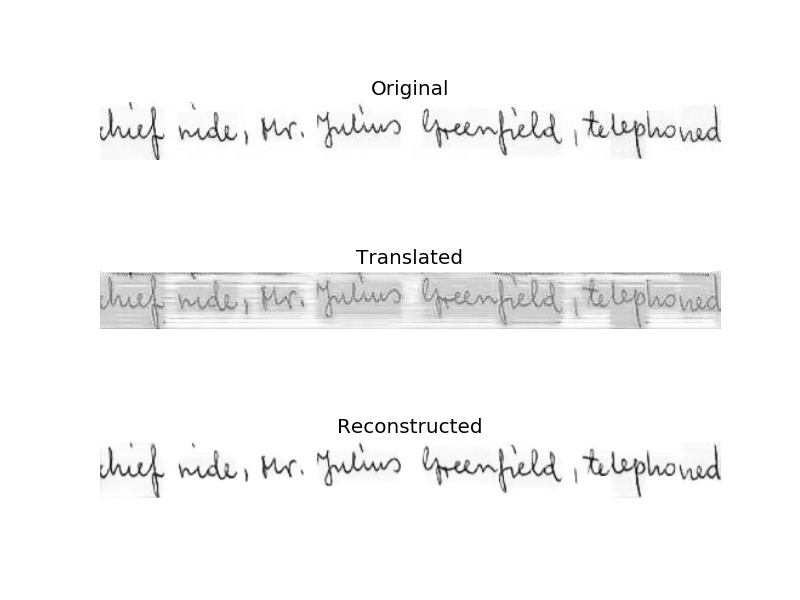 Original
chief aide, Mr. Julius Greenfield, telephoned
Translated
chief aide, Mr. Julius Greenfield, telephoned
Reconstructed
chief aide, Mr. Julius Greenfield, telephoned